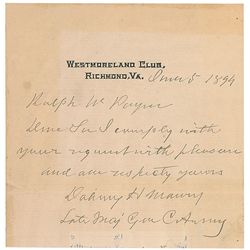 WESTMORELAND CLUB,
RICHMOND, VA. June 5 1894
Ralph W Payne
Dear Sir I comply with
your request with pleasure
and am respctly yours
Dabney H Maury
Late Maj Gen C Army